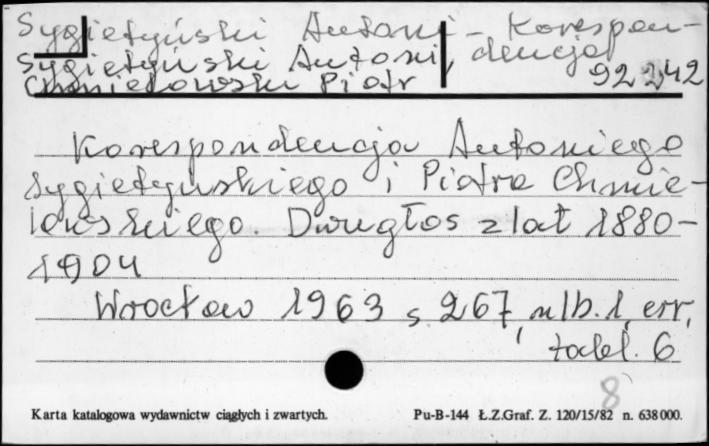 Sygietyński Antoni - Korespon-
Sygietyński Antoni, dencja
Chmielowski Piotr 92242
Korespondencja Antoniego
Sygietyńskiego i Piotra Chmie-
lowskiego. Dwugłos z lat 1880-
1904
Wrocław 1963 s 267, nlb. 1, err,
tabl. 6
8
Karta katalogowa wydawnictw ciągłych i zwartych. Pu-B-144 Ł.Z.Graf. Z. 120/15/82 n. 638000.